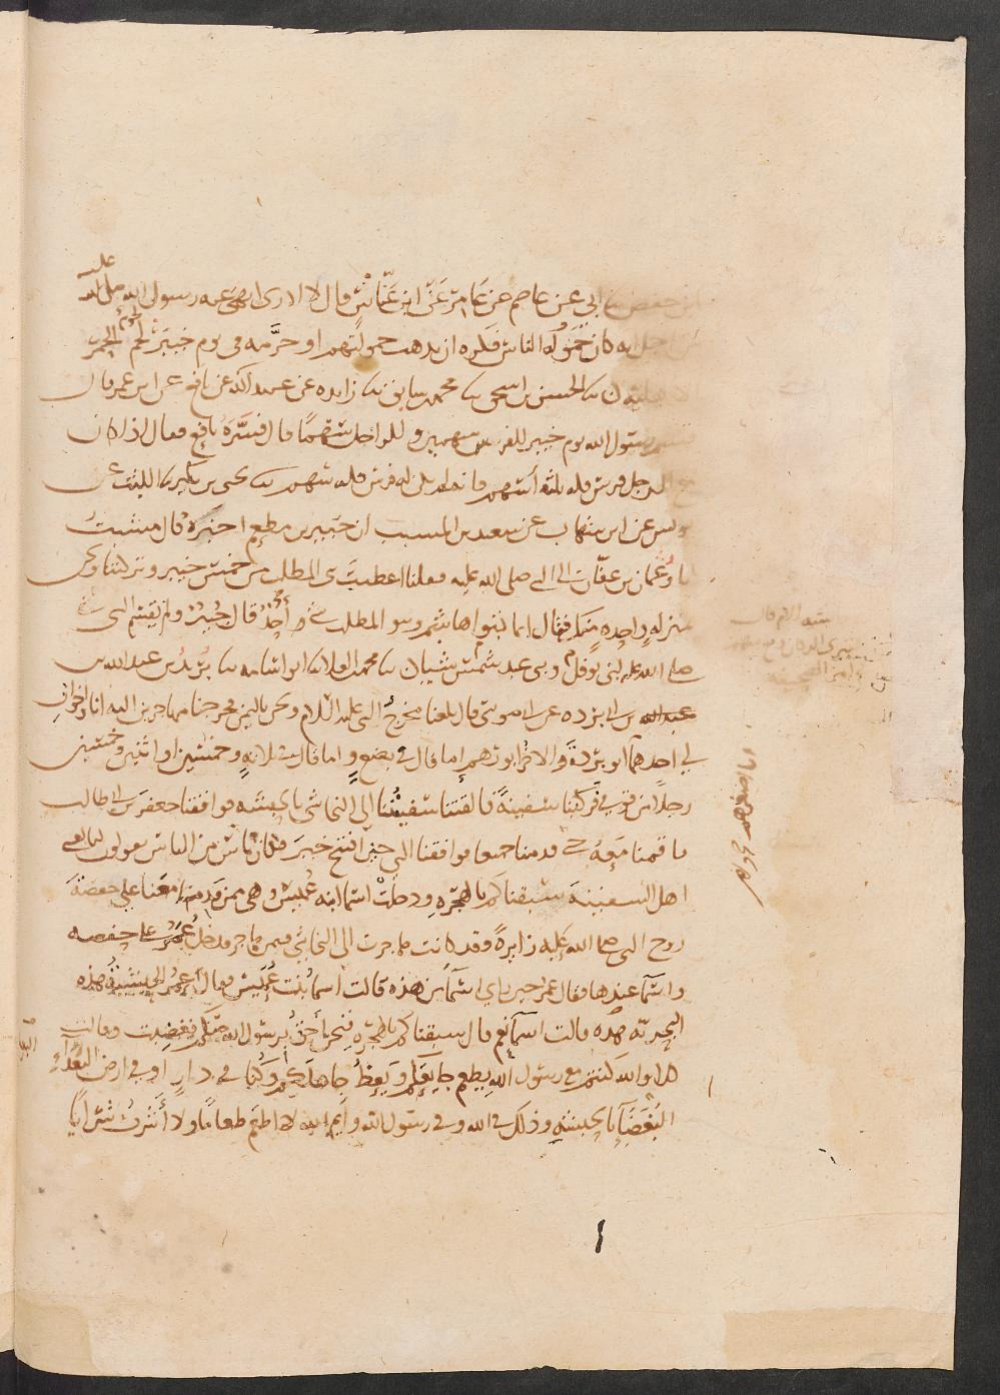 بن حفص نا ابي عن عاصم عن عامر عن ابن عباس قال لا ادري انهى عنه رسول الله صلى الله عليه
من اجل انه كان حمولة الناس فكره ان يذهب حمولتهم او حرمه في يوم خيبر لحم الحمر
الحسن بن اسحق نا محمد بن سابق نا زايدة عن عبيد الله عن نافع عن ابن عمر قال
قسم رسول الله يوم خيبر للفرس سهمين وللراجل سهما قال فسره نافع فقال اذا كان
مع الرجل فرس فله ثلثة أسهم فان لم يكن له فرس فله سهم نا يحيى بن بكير نا الليث عن
يونس عن ابن شهاب عن سعيد بن المسيب ان جبير بن مطعم اخبره قال مشيت
انا وعثمان بن عفان الى النبي صلى الله عليه فقلنا اعطيت بني المطلب من خمس خيبر وتركتنا ونحن
بمنزلة واحدة منك فقال انما بنو هاشم وبنو المطلب شيء واحد قال جبير ولم يقسم النبي
صلى الله عليه لبني نوفل وبني عبد شمس شيئا نا محمد بن العلاء نا ابو اسامه نا بريد بن عبد الله بن
عبد الله بن ابي بردة عن ابي موسى قال بلغنا مخرج النبي عليه السلام ونحن باليمن فخرجنا مهاجرين اليه انا واخوان
لي احدهما ابو بردة والاخر ابو رهم اما قال في بضع واما قال في ثلاثة وخمسين او اثنين وخمسين
رجلا من قومي فركبنا سفينة فالقتنا سفينتنا الى النجاشي بالحبشه فوافقنا جعفر بن ابي طالب
فاقمنا معه حتى قدمنا جميعا فوافقنا النبي حين افتتح خيبر فكان ناس من الناس يقولون لنا يعني
اهل السفينة سبقناكم بالهجرة ودخلت اسما ابنه عميس وهي ممن قدم معنا على حفصة
زوج النبي صلى الله عليه زايرة وقد كانت هاجرت الى النجاشي فيمن هاجر فدخل عمر على حفصه
واسما عندها فقال عمر حين راي اسما من هذه قالت اسما بنت عميس فقال عمر الحبشية هذه
البحرية هذه قالت اسما نعم قال سبقناكم بالهجرة فنحن أحق برسول الله منكم فغضبت وقالت
كلا والله كنتم مع رسول الله يطعم جايعكم ويعظ جاهلكم وكنا في دار او في ارض البعداء
البغضآ بالحبشة وذلك في الله وفي رسول الله وايم الله لا اطعم طعاما ولا أشرب شرابا